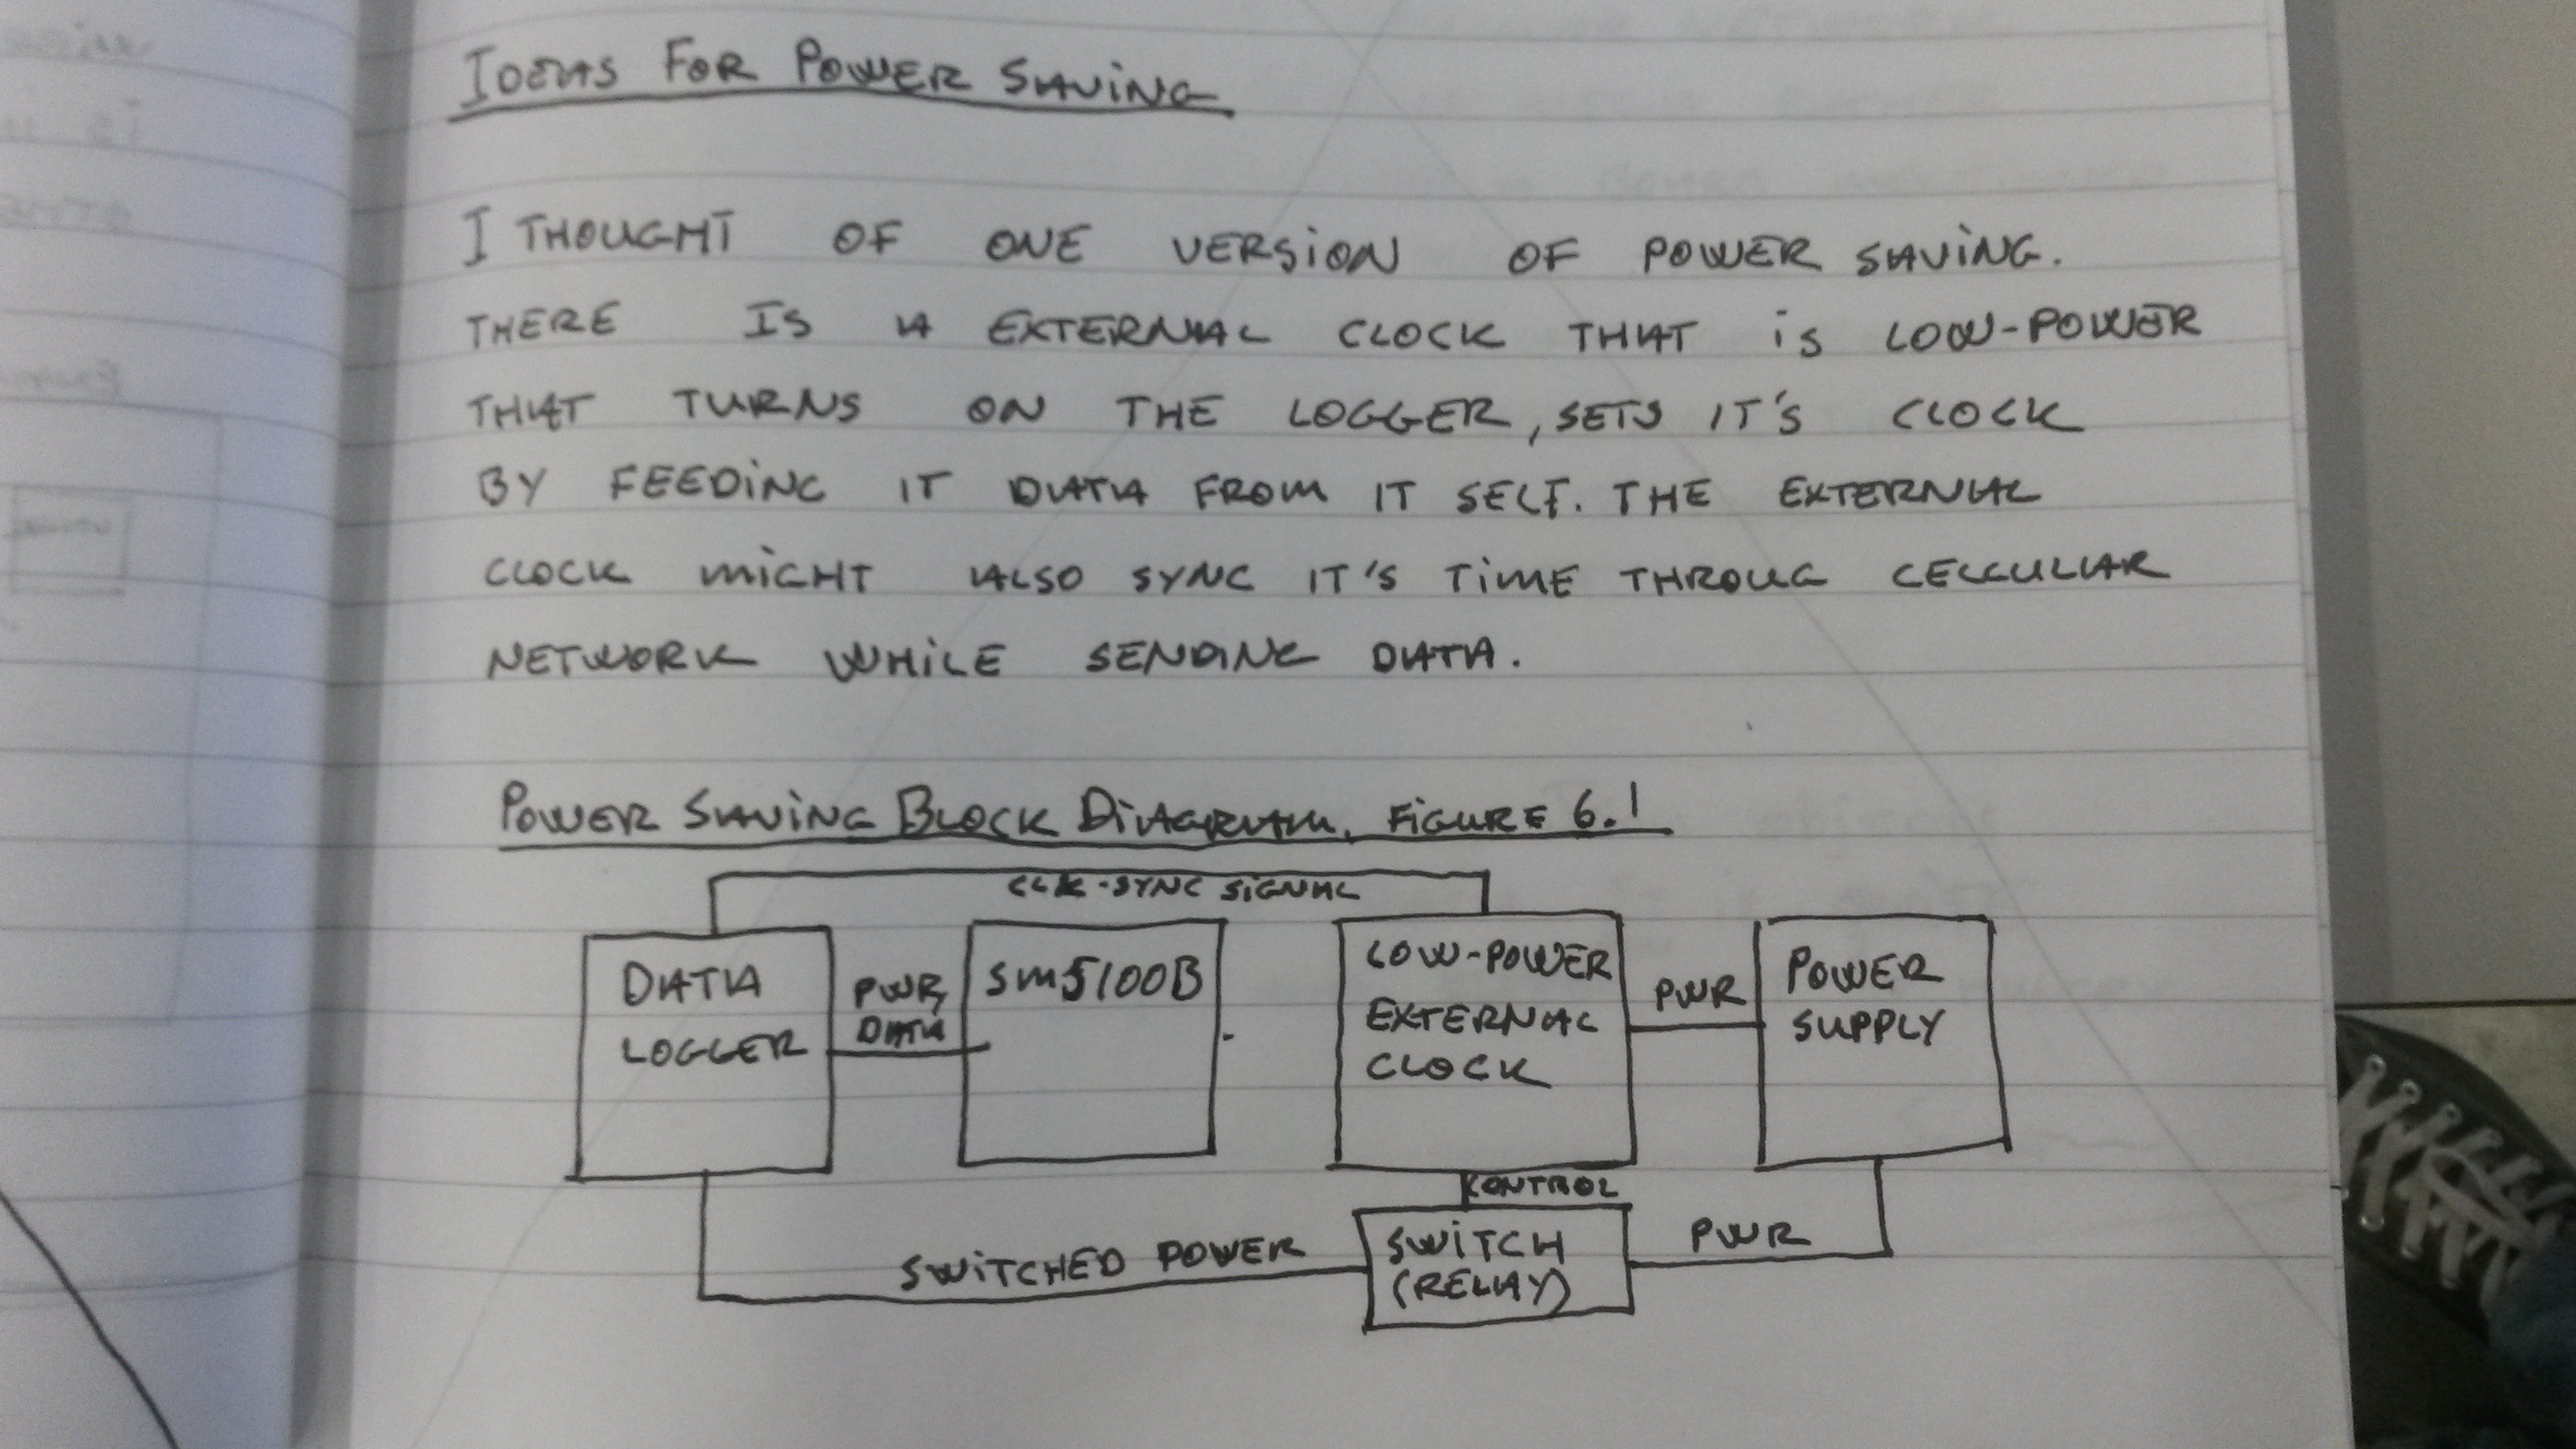 IDEAS FOR POWER SAVING
I THOUGHT OF ONE VERSION OF POWER SAVING.
THERE IS A EXTERNAL CLOCK THAT is LOW-POWER
THAT TURNS ON THE LOGGER, SETS IT'S CLOCK
BY FEEDING IT DATA FROM IT SELF. THE EXTERNAL
CLOCK MIGHT ALSO SYNC IT'S TIME THROUG CELLULLAR
NETWORK WHILE SENDING DATA.
POWER SAVING BLOCK DIAGRAM. FIGURE 6.1
CLK-SYNC SIGNAL
DATA
LOGGER
PWR,
DATA
SM5100B
LOW-POWER
EXTERNAL
CLOCK
PWR
POWER
SUPPLY
KONTROL
SWITCHED POWER
SWITCH
(RELAY)
PWR